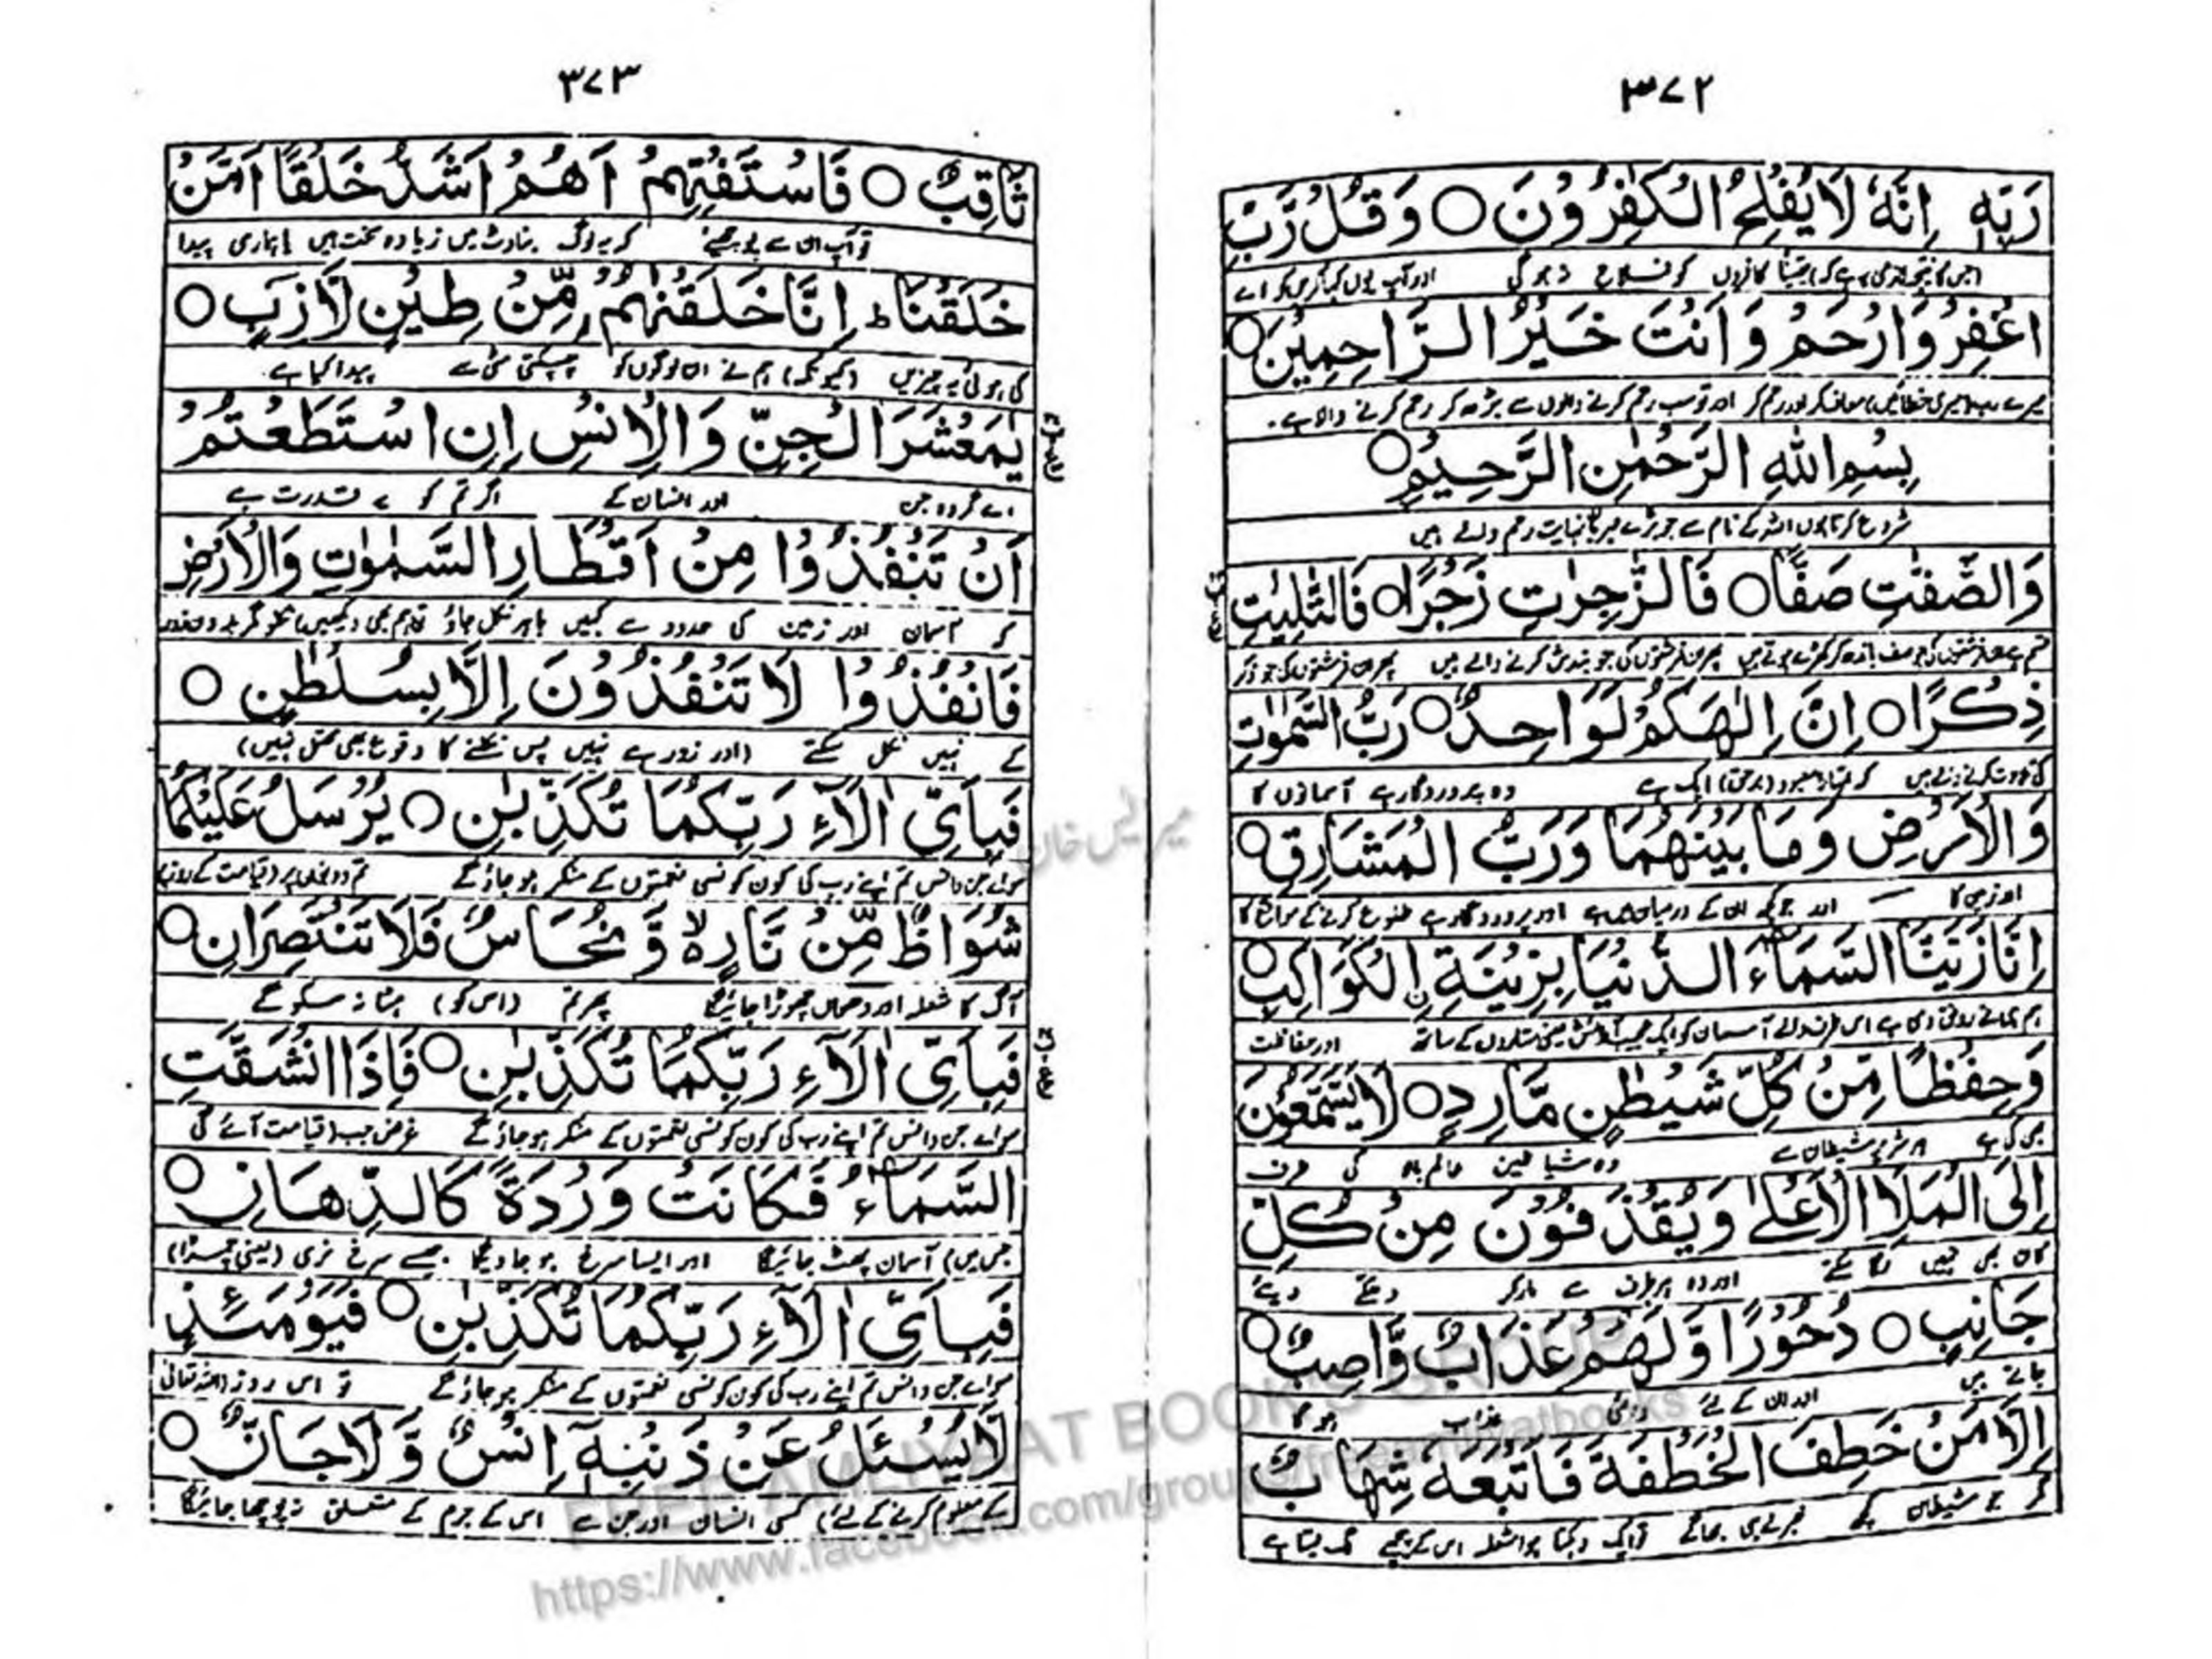 ۳۷۲
رَبِّهٖ اِنَّهٗ لَا یُفْلِحُ الْكٰفِرُوْنَ ○ وَقُلْ رَّبِّ
اغْفِرْ وَارْحَمْ وَاَنْتَ خَیْرُ الرَّاحِمِیْنَ ○
میرے رب (میری خطائیں) معاف کر اور رحم کر اور تو سب رحم کرنے والوں سے بڑھ کر رحم کرنے والا ہے۔
بِسْمِ اللّٰهِ الرَّحْمٰنِ الرَّحِیْمِ ○
شروع کرتا ہوں اللہ کے نام سے جو بڑے مہربان نہایت رحم والے ہیں
وَالصّٰٓفّٰتِ صَفًّا ○ فَالزّٰجِرٰتِ زَجْرًا ○ فَالتّٰلِیٰتِ
قسم ہے ان فرشتوں کی جو صف باندھ کر کھڑے ہوتے ہیں پھر ان فرشتوں کی جو بندش کرنے والے ہیں پھر ان فرشتوں کی جو ذکر
ذِكْرًا ○ اِنَّ اِلٰهَكُمْ لَوَاحِدٌ ○ رَبُّ السَّمٰوٰتِ
کی تلاوت کرنے والے ہیں کہ تمہارا معبود (برحق) ایک ہے وہ پروردگار ہے آسمانوں کا
وَالْاَرْضِ وَمَا بَیْنَهُمَا وَرَبُّ الْمَشَارِقِ ○
اور زمین کا اور جو کچھ ان کے درمیان میں ہے اور پروردگار ہے طلوع کرنے کے مواقع کا
اِنَّا زَیَّنَّا السَّمَآءَ الدُّنْیَا بِزِیْنَةِ ِۨالْكَوَاكِبِ ○
ہم ہی نے رونق دی ہے اس طرف والے آسمان کو ایک عجیب آرائش یعنی ستاروں کے ساتھ اور حفاظت
وَحِفْظًا مِّنْ كُلِّ شَیْطٰنٍ مَّارِدٍ ○ لَا یَسَّمَّعُوْنَ
بھی کی ہے ہر شریر شیطان سے وہ شیاطین عالم بالا کی طرف
اِلَی الْمَلَاِ الْاَعْلٰى وَیُقْذَفُوْنَ مِنْ كُلِّ
کان بھی نہیں لگا سکتے اور وہ ہر طرف سے مار کر دھکے دیئے
جَانِبٍ ○ دُحُوْرًا وَّلَهُمْ عَذَابٌ وَّاصِبٌ ○
جاتے ہیں اور ان کے لئے دائمی عذاب ہوگا
اِلَّا مَنْ خَطِفَ الْخَطْفَةَ فَاَتْبَعَهٗ شِهَابٌ
مگر جو شیطان کچھ خبر لے ہی بھاگے تو ایک دہکتا ہوا شعلہ اس کے پیچھے لگ لیتا ہے
۳۷۳
ثَاقِبٌ ○ فَاسْتَفْتِهِمْ اَهُمْ اَشَدُّ خَلْقًا اَمْ مَّنْ
تو آپ ان سے پوچھیئے کہ یہ لوگ بناوٹ میں زیادہ سخت ہیں یا ہماری پیدا
خَلَقْنَا ؕ اِنَّا خَلَقْنٰهُمْ مِّنْ طِیْنٍ لَّازِبٍ ○
کی ہوئی یہ چیزیں (کیونکہ) ہم نے ان لوگوں کو چپکتی مٹی سے پیدا کیا ہے۔
یٰمَعْشَرَ الْجِنِّ وَالْاِنْسِ اِنِ اسْتَطَعْتُمْ
اے گروہ جن اور انسان کے اگر تم کو یہ قدرت ہے
اَنْ تَنْفُذُوْا مِنْ اَقْطَارِ السَّمٰوٰتِ وَالْاَرْضِ
کہ آسمان اور زمین کی حدود سے کہیں باہر نکل جاؤ تو ہم بھی دیکھیں نکلو مگر بدون زور
فَانْفُذُوْا لَا تَنْفُذُوْنَ اِلَّا بِسُلْطٰنٍ ○
کے نہیں نکل سکتے (اور زور ہے نہیں پس نکلنے کا وقوع بھی محتمل نہیں)
فَبِاَیِّ اٰلَآءِ رَبِّكُمَا تُكَذِّبٰنِ ○ یُرْسَلُ عَلَیْكُمَا
سو اے جن و انس تم اپنے رب کی کون کونسی نعمتوں کے منکر ہو جاؤ گے تم دونوں پر (قیامت کے روز)
شُوَاظٌ مِّنْ نَّارٍ ۙ۬ وَّنُحَاسٌ فَلَا تَنْتَصِرَانِ ○
آگ کا شعلہ اور دھواں چھوڑا جائیگا پھر تم (اس کو) ہٹا نہ سکو گے
فَبِاَیِّ اٰلَآءِ رَبِّكُمَا تُكَذِّبٰنِ ○ فَاِذَا انْشَقَّتِ
سو اے جن و انس تم اپنے رب کی کون کونسی نعمتوں کے منکر ہو جاؤ گے غرض جب (قیامت آئے گی
السَّمَآءُ فَكَانَتْ وَرْدَةً كَالدِّهَانِ ○
جس میں) آسمان پھٹ جائیگا اور ایسا سرخ ہو جاویگا جیسے سرخ نری (یعنی چمڑا)
فَبِاَیِّ اٰلَآءِ رَبِّكُمَا تُكَذِّبٰنِ ○ فَیَوْمَئِذٍ
سو اے جن و انس تم اپنے رب کی کون کونسی نعمتوں کے منکر ہو جاؤ گے تو اس روز (اللہ تعالیٰ
لَّا یُسْئَلُ عَنْ ذَنْۢبِهٖٓ اِنْسٌ وَّلَا جَآنٌّ ○
کے معلوم کرنے کے لئے) کسی انسان اور جن سے اس کے جرم کے متعلق نہ پوچھا جائیگا
FREE AMLIYAAT BOOK'S GROUP
https://www.facebook.com/groups/freeamliyatbooks